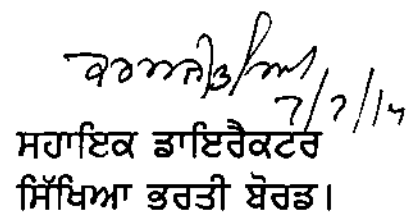 7/7/14
ਸਹਾਇਕ ਡਾਇਰੈਕਟਰ
ਸਿੱਖਿਆ ਭਰਤੀ ਬੋਰਡ।